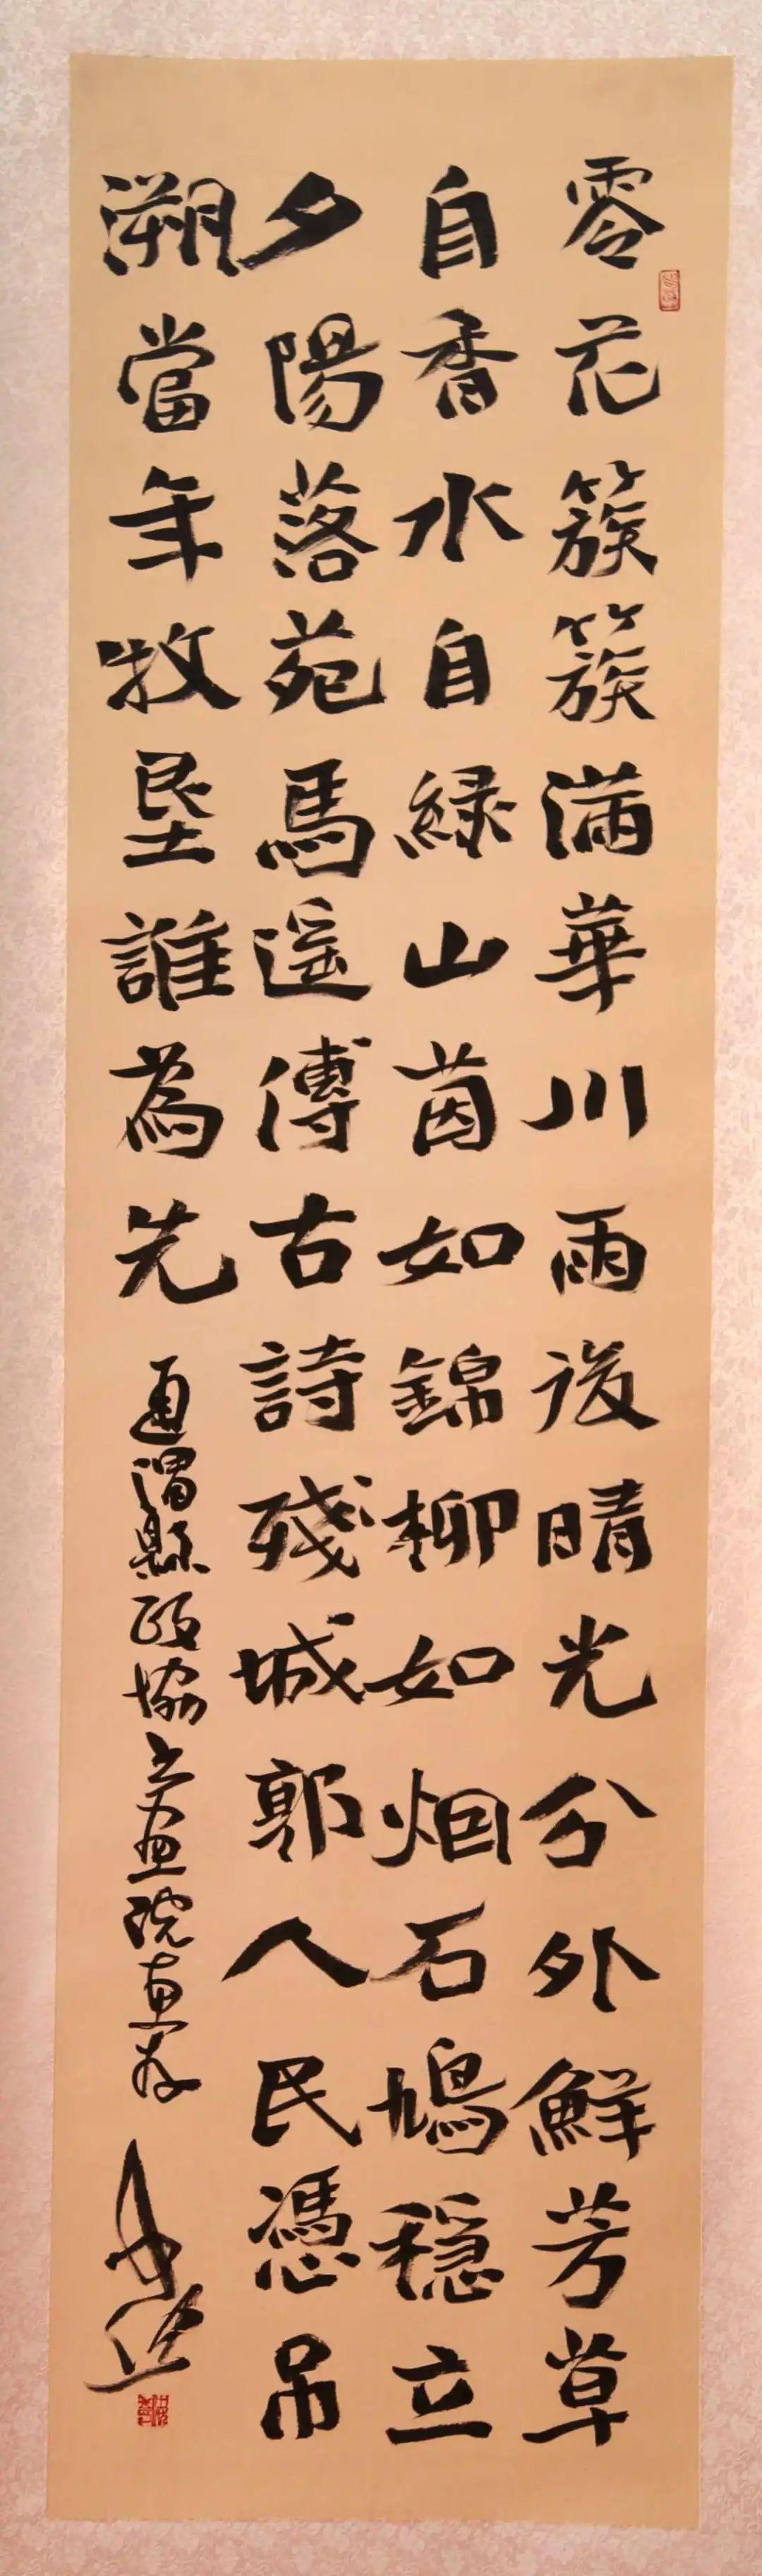 零花簇簇滿華川雨後晴光分外鮮芳草
自香水自綠山茵如錦柳如烟石鳩穩立
夕陽落苑馬遥傳古詩殘城郭人民憑吊
溯當年牧墾誰為先
通渭縣政協書画院惠存